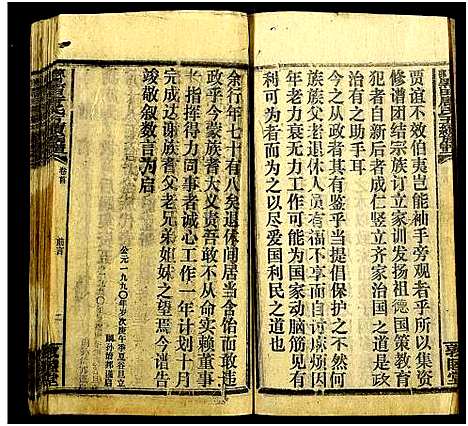 賈誼不效伯夷豈能袖手旁觀者乎所以集资
修谱团结宗族订立家训发扬祖德国策教育
犯者自新后者成仁竖立齐家治国之道是政
治有之助手耳
今之从政者其有鉴乎当提倡保护之不然何
族族父老退休人员有福不享而自讨麻烦因
为老力衰无力工作可能为国家动脑筋见有
利国可为民的以尽爱国利民之道也
余行年七十有八矣退休闲居当含饴而敢违
政乎今蒙族者大义責吾敢不从命实赖董事
指挥得力同事者诚心工作一年计划十月
完成达谢族者父老兄弟姐妹之望焉今谱告
竣敬叙数言为启
公元一九九〇年岁次庚午季夏谷旦立
卷首
前言
二